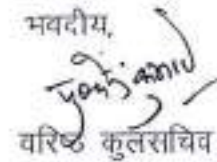 भवदीय,
वरिष्ठ कुलसचिव